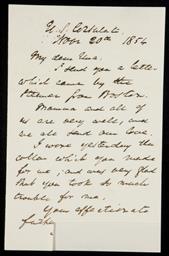 U. S. Consulate
Novr 20th 1854
My dear Una.
I send you a letter
which came by the
steamer from Boston.
Mamma and all of
us are very well, and
we all send our love.
I wore yesterday the
collar which you made
for me; and was very glad
that you took so much
trouble for me.
Your affectionate
father